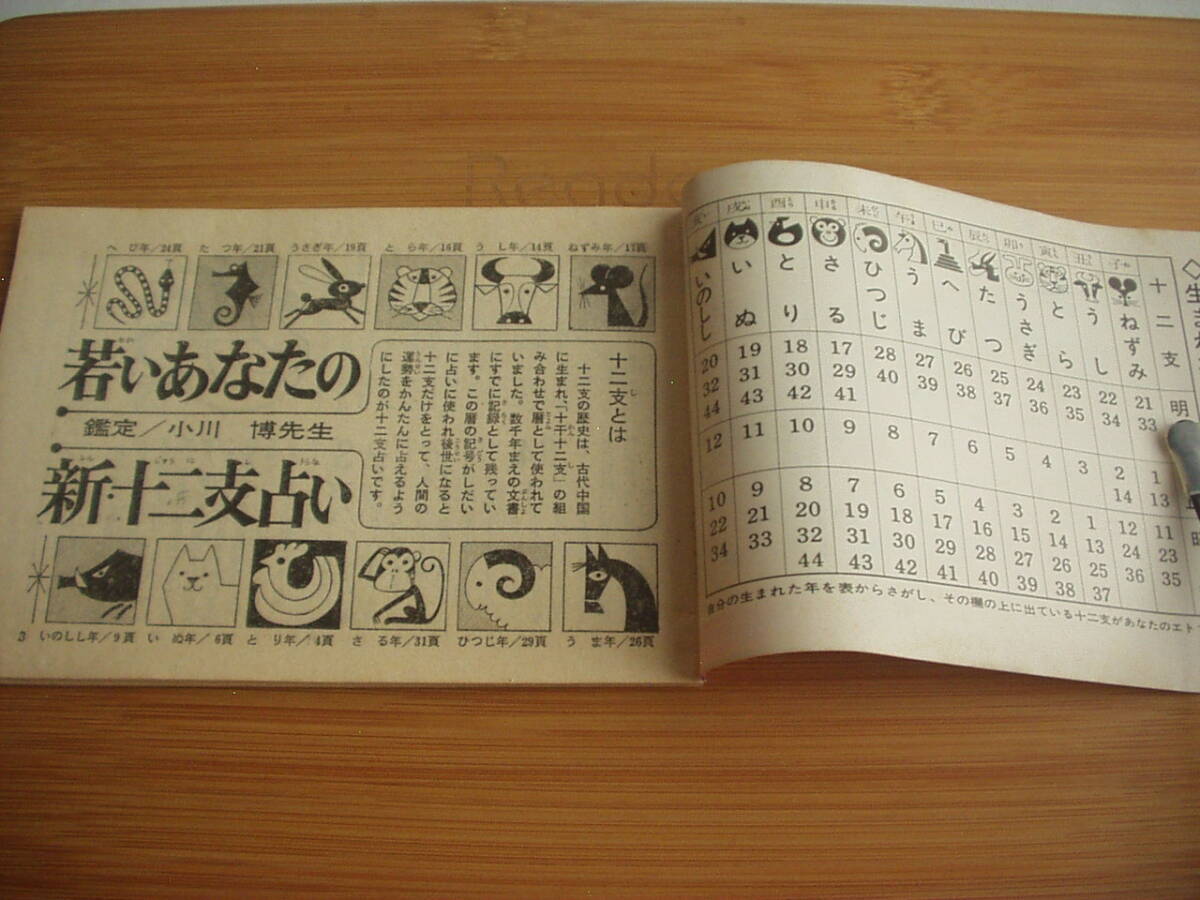 へび年/24頁 たつ年/21頁 うさぎ年/19頁 とら年/16頁 うし年/14頁 ねずみ年/17頁
若いあなたの
鑑定/小川 博先生
新・十二支占い
十二支とは
十二支の歴史は、古代中国
に生まれ、「十干十二支」の組
み合わせで暦として使われて
いました。数千年まえの文書
にすでに記録として残ってい
ます。この暦の記号がしだい
に占いに使われ後世になると
十二支だけをとって、人間の
運勢をかんたんに占えるよう
にしたのが十二支占いです。
3 いのしし年/9頁 いぬ年/6頁 とり年/4頁 さる年/31頁 ひつじ年/29頁 うま年/26頁
戌 酉 申 未 午 巳 辰 卯 寅 丑 子
いのしし いぬ とり さる ひつじ うま へび たつ うさぎ とら うし ねずみ 十二支
20 19 18 17 28 27 26 25 24 23 22 21 明
32 31 30 29 40 39 38 37 36 35 34 33
44 43 42 41
12 11 10 9 8 7 6 5 4 3 2 1
14 13
10 9 8 7 6 5 4 3 2 1 12 11
22 21 20 19 18 17 16 15 14 13 24 23
34 33 32 31 30 29 28 27 26 25 36 35
44 43 42 41 40 39 38 37
自分の生まれた年を表からさがし、その欄の上に出ている十二支があなたのエト